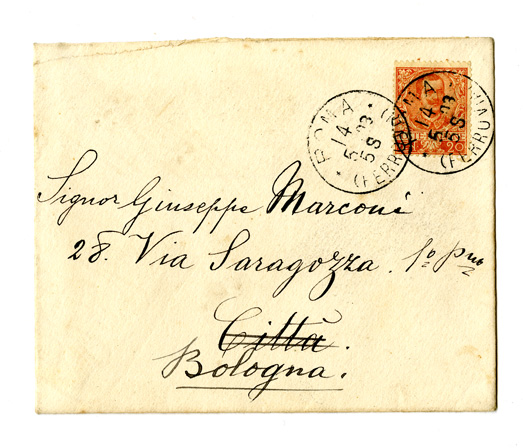 ROMA (FERROVIA)
14
5 03
5 S
ROMA (FERROVIA)
14
5 03
5 S
20
Signor Giuseppe Marconi
28. Via Saragozza. 1º Pno
Città.
Bologna.